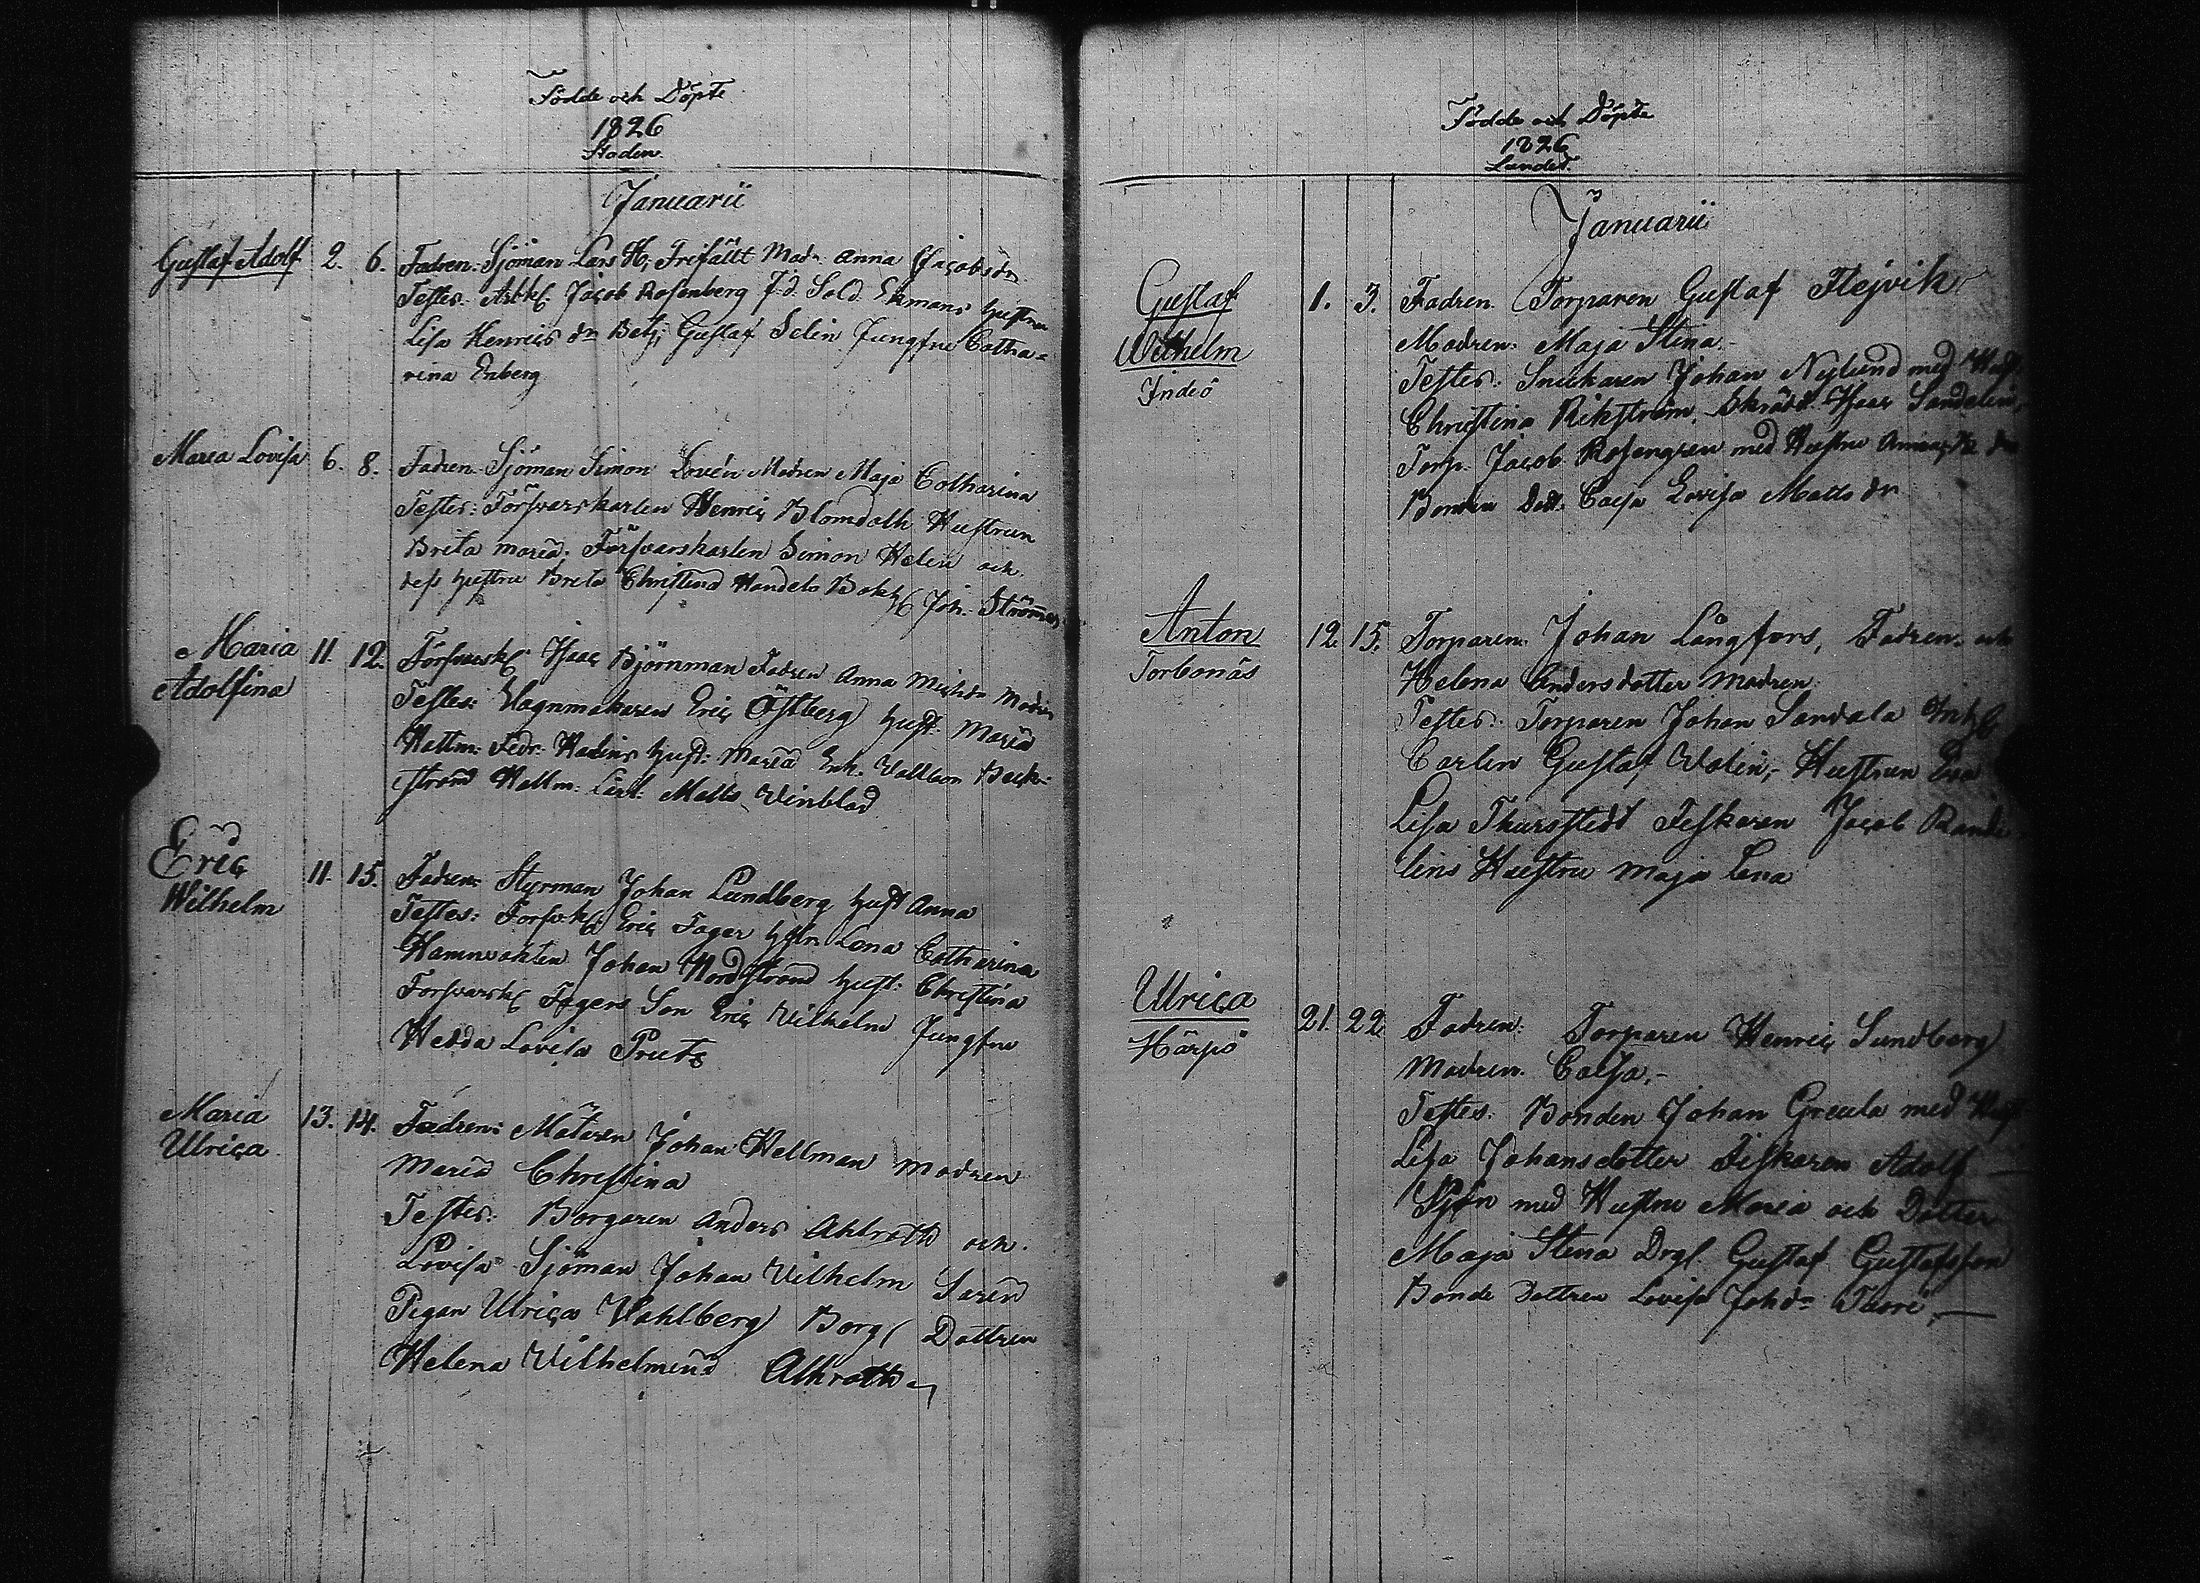 Födde och Döpte
1826
Staden
Januarii
Gustaf Adolf 2. 6. Fadren: Sjöman Lars H: Trifällt Modr. Anna Jacobsdr
Testes: Arbk: Jacob Rosenberg f.d. Sold. Ekmans hustru
Lisa Henricsdr Betj: Gustaf Selin Jungfru Catha=
rina Enberg
Maria Lovisa 6. 8. Fadren: Sjöman Simon Lovén Modren Maja Catharina
Testes: Försvarskarlen Henric Blomdalh Hustrun
Brita Maria. Försvarskarlen Simon Helin och
dess hustru Brita Christina Handels Bokh Joh. Ström
Maria 11. 12. Försvarsk Isaac Björnman Fadren Anna Michdr Modren
Adolfina
Testes: Vagnmakaren Eric Östberg hust: Maria
Waltm: Fedr: Hust: Maria Enk. Back=
ström Waltm: Matts Vinblad
Eric 11. 15. Fadren: Styrman Johan Lundberg hust Anna
Wilhelm
Testes: Försvk: Eric Fager hstr Lena Catharina
Hamnvakten Johan Nordström hust: Christina
Forsvarsk Fagers Son Eric Vilhelm Jungfru
Hedda Lovisa Prutz
Maria 13. 14. Fadren: Mätaren Johan Hellman Modren
Ulrica
Maria Christina
Testes: Borgaren Anders Ahlroth och
Lovisa Sjöman Johan Vilhelm Sarén
Pigan Ulrica Wahlberg Borg Dottren
Helena Vilhelmina Alhroth
Födde och Döpte
1826
Landet.
Januarii
Gustaf 1. 3. Fadren. Torparen Gustaf Flejvik
Wilhelm
Indeö
Modren: Maja Stina.-
Testes: Snickaren Johan Nylund med Hust
Christina Rikström. Skrädd. Isaac Sandelin,
Torp. Jacob Rosengren med Hustru
Bonden Dott. Caisa Lovisa Matts dr
Anton 12. 15. Torparen Johan Långfors, Fadren och
Torbonäs
Helena Andersdotter Modren
Testes: Torparen Johan Sandala
Carlen Gustaf Walin, Hustrun Eva
Lisa Thurstedt Fiskaren Jacob Rande
lins Hustru Maja Lena
Ulrica 21. 22. Fadren: Torparen Henric Sundberg
Härpö
Modren. Caisa,-
Testes. Bonden Johan Greula med Hust
Lisa Johansdotter Fiskaren Adolf
Sjön med Hustru Maria och Dotter
Maja Stina Drgl. Gustaf Gustafsson
Bonde Dottren Lovisa Johdr